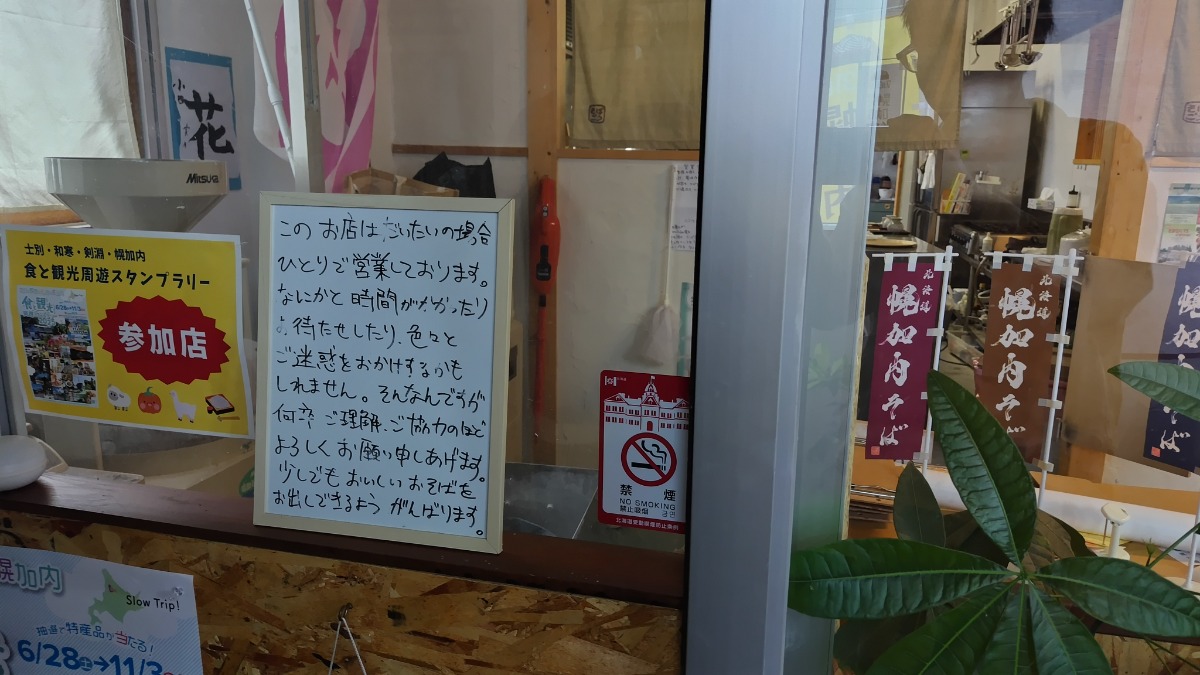 花
MITSUWA
士別・和寒・剣淵・幌加内
食と観光周遊スタンプラリー
参加店
このお店はだいたいの場合
ひとりで営業しております。
なにかと時間がかかったり
お待たせしたり、色々と
ご迷惑をおかけするかも
しれません。そんなんですが
何卒ご理解、ご協力のほど
よろしくお願い申しあげます。
少しでもおいしいおそばを
お出しできるようがんばります。
禁煙
NO SMOKING
禁止吸烟 금연
北海道受動喫煙防止条例
北海道
幌加内そば
北海道
幌加内そば
幌加内そば
幌加内
Slow Trip!
抽選で特産品が当たる!
6/28土→11/3